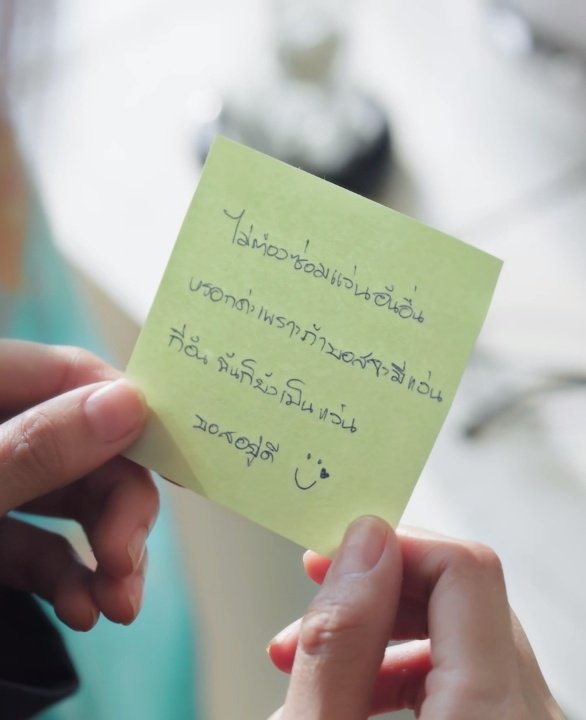 ไม่ต้องซ่อมแว่นอันอื่น
หรอกค่ะเพราะถ้าบอสจะมีแว่น
กี่อัน ฉันก็ยังเป็น แว่น
บอสอยู่ดี